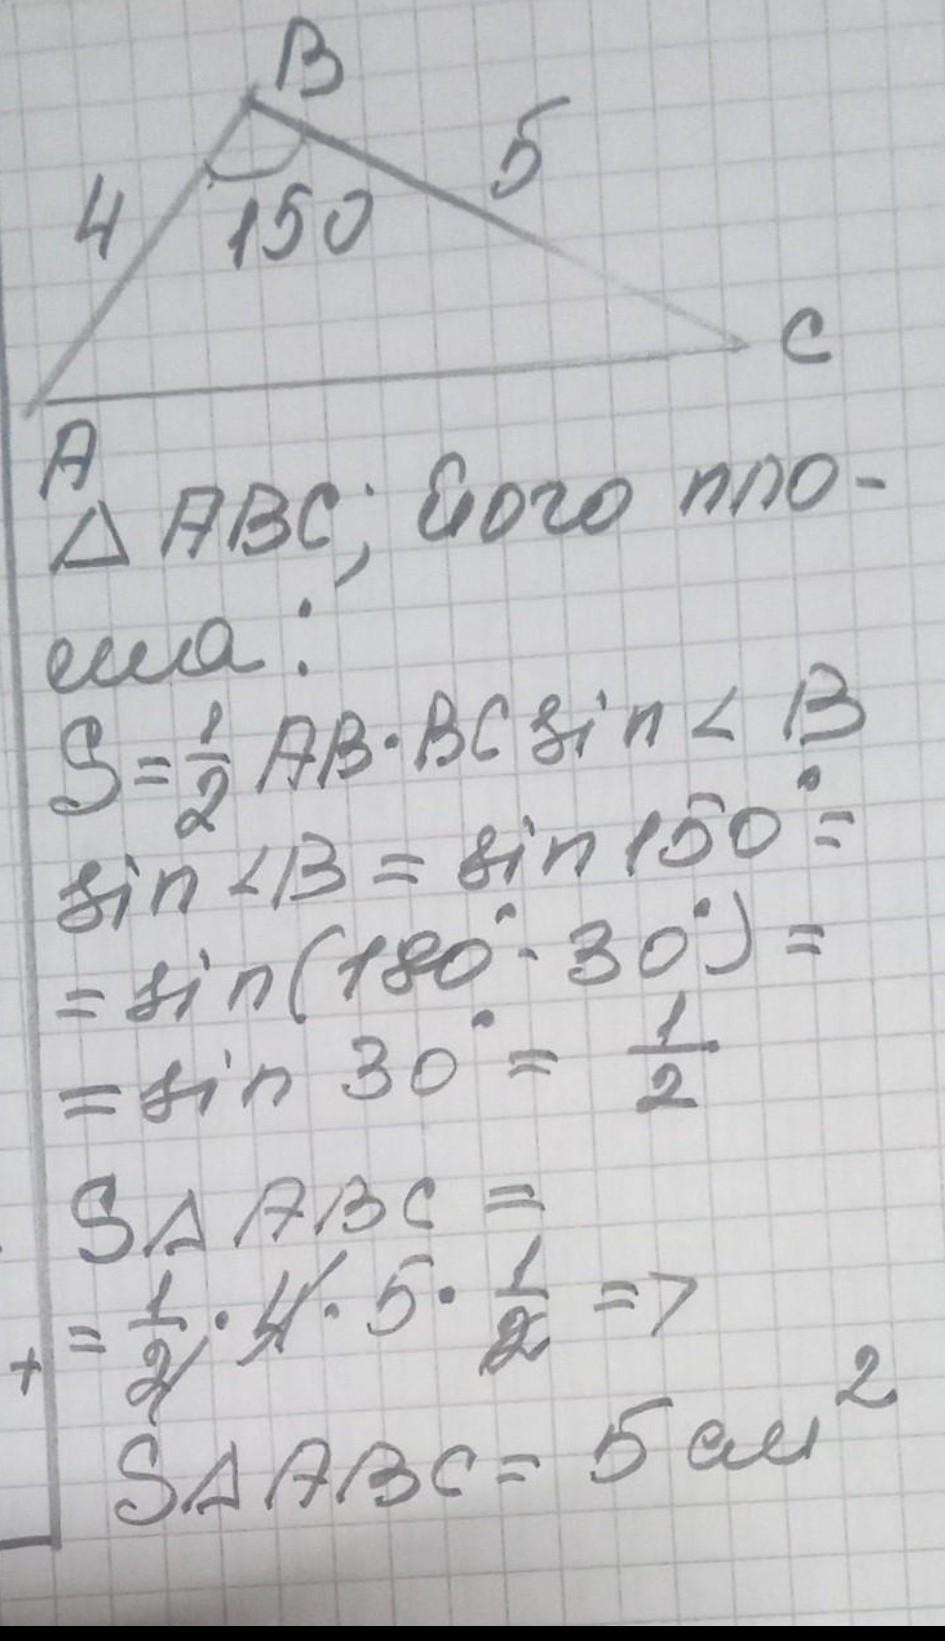 B
4
5
150
C
A
△ ABC; його пло-
ща:
S=1/2 AB·BC sin < B
sin <B = sin 150° =
= sin(180° - 30°) =
= sin 30° = 1/2
S△ ABC =
= 1/2 · 4 · 5 · 1/2 =>
S△ABC = 5 см²
+